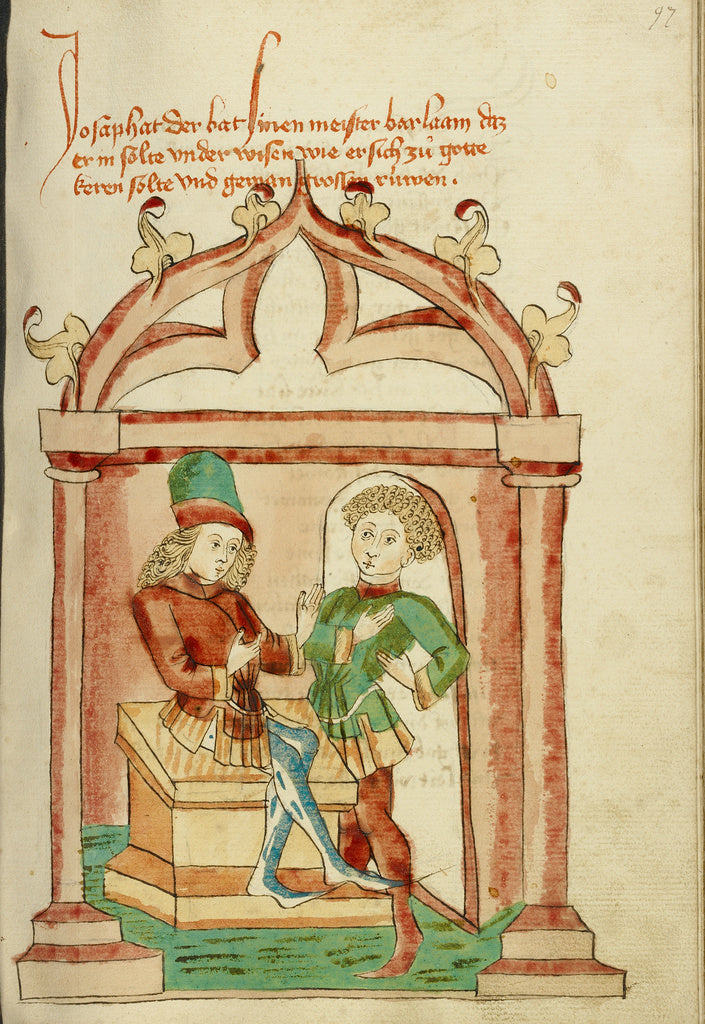 97
Josaphat der bat sinen meister barlaam daz
er in solte vnder wisen wie er sich zů gotte
keren solte vnd gewan grossen rúwen .